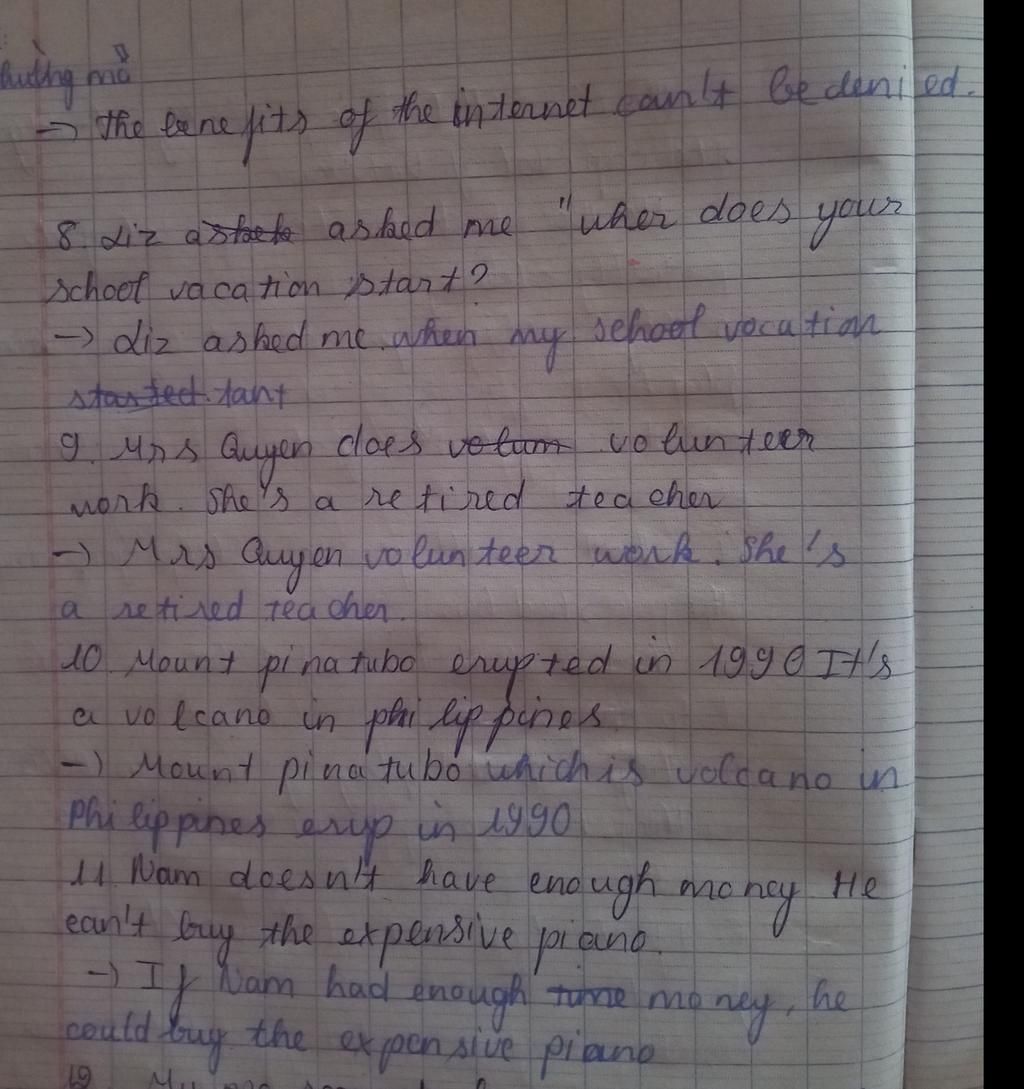 hướng mở
→ the benefits of the internet can't be denied.
8. Liz asked me "when does your
school vacation start?
→ Liz asked me when my school vocation
started tant
9. Mrs Quyen does volum volunteer
work. She's a retired teacher
→ Mrs Quyen volunteer work. She's
a retired teacher.
10. Mount pinatubo erupted in 1990 It's
a volcano in philippines
→ Mount pinatubo which is volcano in
Philippines erup in 1990
11 Nam doesn't have enough money He
can't buy the expensive piano.
→ If Nam had enough time money, he
could buy the expensive piano